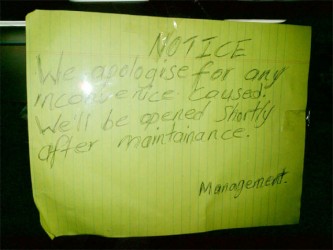 NOTICE
We apologise for any
inconvenience caused.
We'll be opened shortly
after maintainance.
Management.